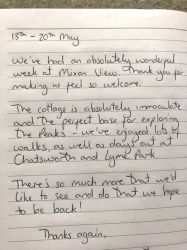 13th - 20th May
We've had an absolutely wonderful
week at Mixon View. Thank you for
making us feel so welcome.
The cottage is absolutely immaculate
and the perfect base for exploring
The Peaks - we've enjoyed lots of
walks, as well as days out at
Chatsworth and Lyme Park.
There's so much more that we'd
like to see and do that we hope
to be back!
Thanks again,